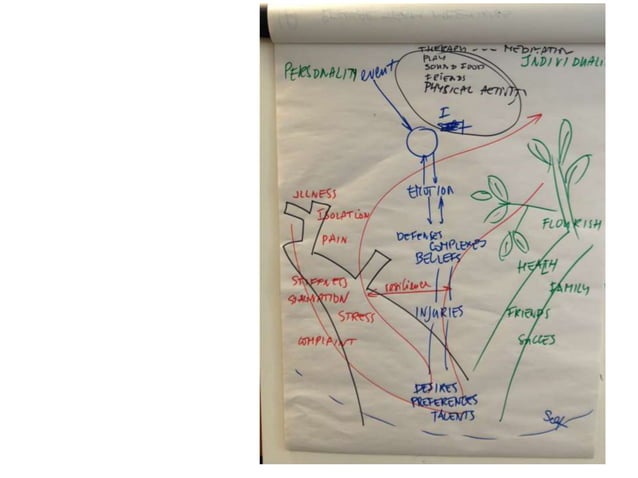 THERAPY --- MEDITATION
PLAY
SOUND FOOD
FRIENDS
PHYSICAL ACTIVITY
INDIVIDUALI
PERSONALITY
event
I
EMOTION
DEFENSES
COMPLEXES
BELIEFS
resilience
INJURIES
DESIRES
PREFERENCES
TALENTS
ILLNESS
ISOLATION
PAIN
STRESS
COMPLAINT
FLOURISH
HEALTH
FAMILY
FRIENDS
Self